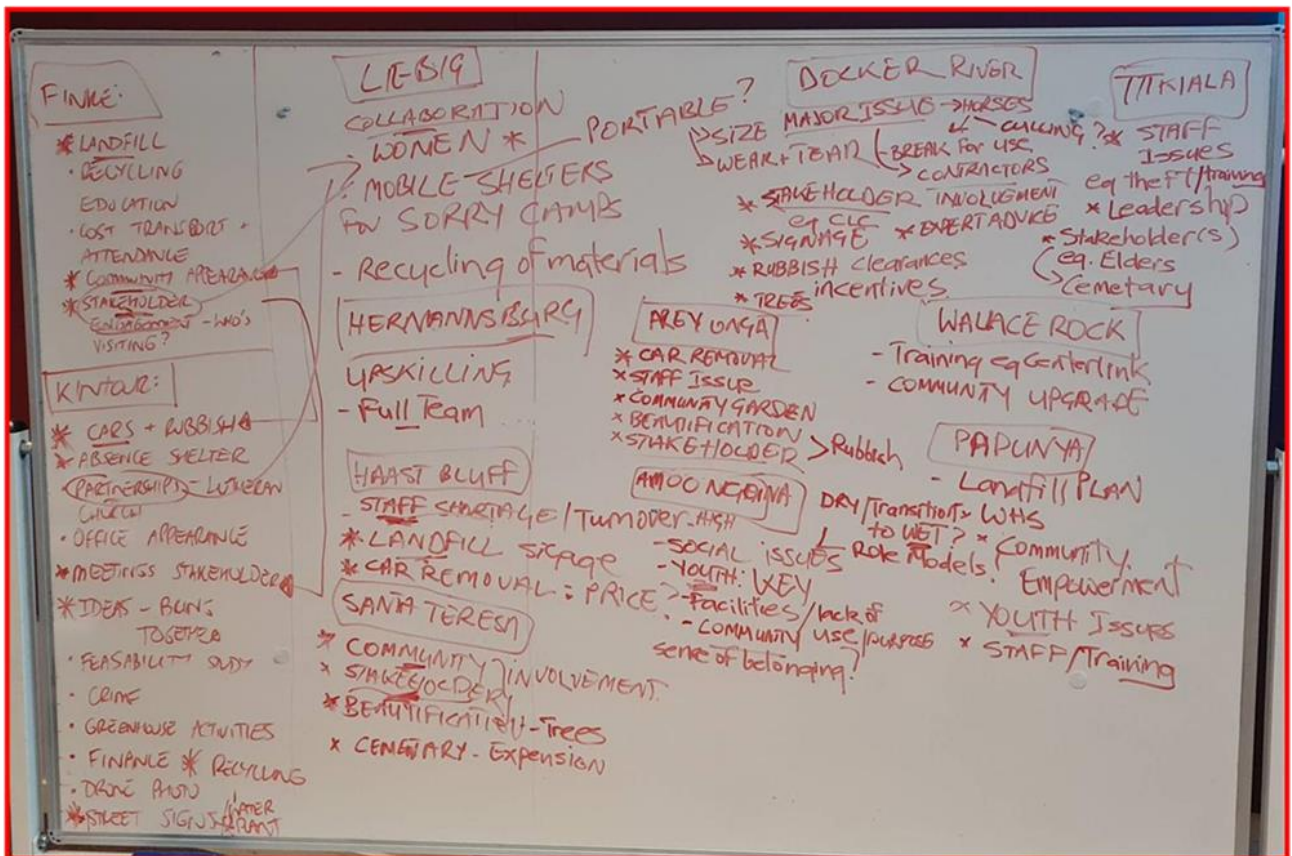 FINKE:
* LANDFILL
• RECYCLING
EDUCATION
• COST TRANSPORT +
ATTENDANCE
* COMMUNITY APPEARANCE
* STAKEHOLDER
ENGAGEMENT - WHO'S
VISITING?
KINTORE:
* CARS + RUBBISH
* ABSENCE SHELTER
PARTNERSHIPS - LUTHERAN
CHURCH
• OFFICE APPEARANCE
* MEETINGS STAKEHOLDER
* IDEAS - BLING
TOGETHER
• FEASABILITY STUDY
• CRIME
• GREENHOUSE ACTIVITIES
• FINANCE * RECYCLING
• DRONE PHOTO
* STREET SIGNS/WATER
GRANT
LIEBIG
COLLABORATION
• WOMEN *
• MOBILE SHELTERS
FOR SORRY CAMPS
- Recycling of materials
PORTABLE?
HERMANNSBURG
UPSKILLING
- Full Team
HAAST BLUFF
- STAFF SHORTAGE/Turnover-HIGH
* LANDFILL signage
* CAR REMOVAL = PRICE?
SANTA TERESA
* COMMUNITY } INVOLVEMENT.
* STAKEHOLDERY
* BEAUTIFICATION - Trees
* CEMETARY - Expension
DOCKER RIVER
MAJOR ISSUE → HORSES
SIZE
WEAR + TEAR
CULLING?
BREAK FOR USE
CONTRACTORS
* STAKEHOLDER INVOLVEMENT
eg CLC
* SIGNAGE * EXPERT ADVICE
* RUBBISH clearances
incentives
* TREES
AREYONGA
* CAR REMOVAL
* STAFF ISSUE
* COMMUNITY GARDEN
* BEAUTIFICATION
* STAKEHOLDER > Rubbish
AMOONGUNA
DRY/Transition
to WET?
- SOCIAL ISSUES
Role Models.
- YOUTH: KEY
- Facilities/lack of
- COMMUNITY USE/PURPOSE
sense of belonging?
TITKIALA
* STAFF
ISSUES
eg theft/training
* Leadership
* Stakeholder(s)
eg. Elders
Cemetary
WALACE ROCK
- Training eg Centerlink
- COMMUNTY UPGRADE
PAPUNYA
- Landfill PLAN
* WHS
* COMMUNITY.
Empowerment
* YOUTH ISSUES
* STAFF/Training